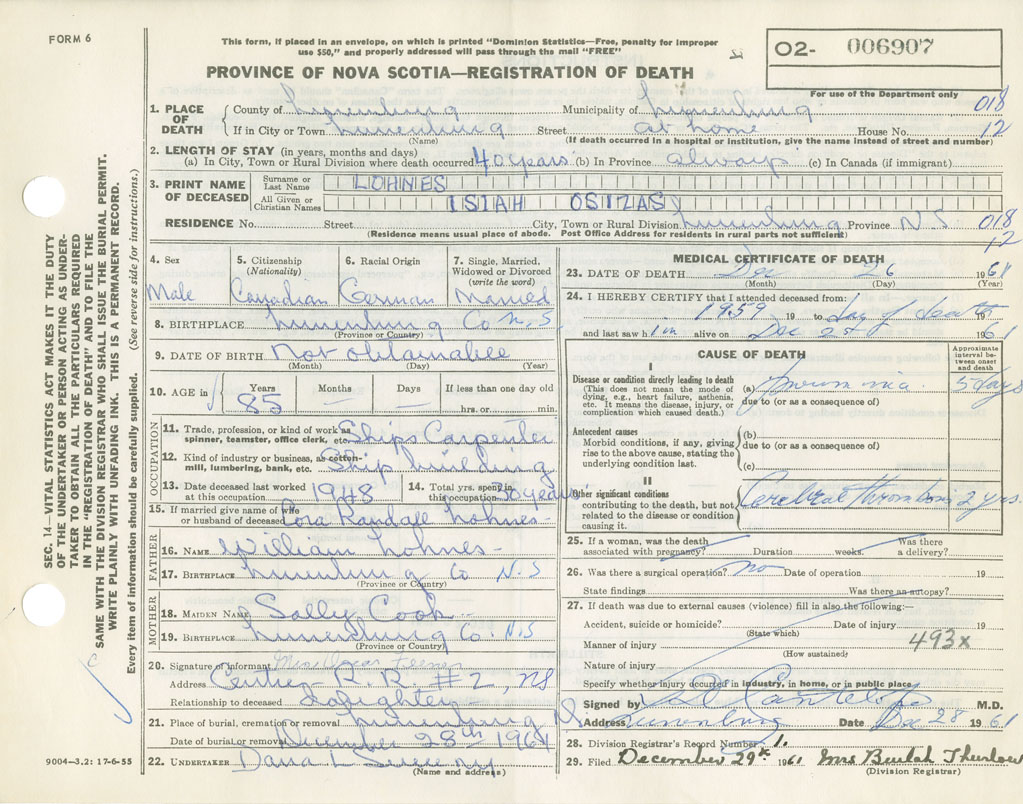 FORM 6
This form, if placed in an envelope, on which is printed "Dominion Statistics—Free, penalty for improper
use $50," and properly addressed will pass through the mail "FREE"
O2- 006907
For use of the Department only
PROVINCE OF NOVA SCOTIA—REGISTRATION OF DEATH
1. PLACE OF DEATH County of Lunenburg Municipality of Lunenburg 018
If in City or Town Lunenburg Street at home House No. 12
(Name) (If death occurred in a hospital or institution, give the name instead of street and number)
2. LENGTH OF STAY (in years, months and days)
(a) In City, Town or Rural Division where death occurred 40 years (b) In Province always (c) In Canada (if immigrant)
3. PRINT NAME OF DECEASED
Surname or Last Name LOHNES
All Given or Christian Names ISIAH OSIZAS
RESIDENCE No. Street City, Town or Rural Division Lunenburg Province N S 018
(Residence means usual place of abode. Post Office Address for residents in rural parts not sufficient) 12
4. Sex Male
5. Citizenship (Nationality) Canadian
6. Racial Origin German
7. Single, Married, Widowed or Divorced (write the word) Married
8. BIRTHPLACE Lunenburg Co N, S
(Province or Country)
9. DATE OF BIRTH Not obtainable
(Month) (Day) (Year)
10. AGE in Years 85 Months — Days — If less than one day old hrs. or min.
OCCUPATION
11. Trade, profession, or kind of work as spinner, teamster, office clerk, etc. Ships Carpenter
12. Kind of industry or business, as cotton-mill, lumbering, bank, etc. Ship building
13. Date deceased last worked at this occupation 1948
14. Total yrs. spent in this occupation 30 years
15. If married give name of wife or husband of deceased Cora Randall Lohnes -
FATHER
16. NAME William Lohnes -
17. BIRTHPLACE Lunenburg Co N.S
(Province or Country)
MOTHER
18. MAIDEN NAME Sally Cook -
19. BIRTHPLACE Lunenburg Co. N.S
(Province or Country)
20. Signature of informant Mrs Oscar Feener
Address Centre R.R #2, NS
Relationship to deceased daughter
21. Place of burial, cremation or removal Lunenburg N.
Date of burial or removal December 28th 1961
22. UNDERTAKER Dana L Sweeny
(Name and address)
MEDICAL CERTIFICATE OF DEATH
23. DATE OF DEATH Dec 26 1961
(Month) (Day) (Year)
24. I HEREBY CERTIFY that I attended deceased from:
1959 19 to day of death
and last saw h im alive on Dec 25 1961
CAUSE OF DEATH
Approximate interval between onset and death
I
Disease or condition directly leading to death (a) Pneumonia 5 days
(This does not mean the mode of dying, e.g., heart failure, asthenia, etc. It means the disease, injury, or complication which caused death.)
due to (or as a consequence of)
Antecedent causes
Morbid conditions, if any, giving rise to the above cause, stating the underlying condition last.
(b)
due to (or as a consequence of)
(c)
II
Other significant conditions contributing to the death, but not related to the disease or condition causing it.
Cerebral Thrombosis 2 yrs.
25. If a woman, was the death associated with pregnancy? Duration weeks. Was there a delivery?
26. Was there a surgical operation? no Date of operation 19
State findings Was there an autopsy?
27. If death was due to external causes (violence) fill in also the following:—
Accident, suicide or homicide? Date of injury 19
(State which)
Manner of injury 493x
(How sustained)
Nature of injury
Specify whether injury occurred in industry, in home, or in public place
Signed by Cantelope M.D.
Address Lunenburg Date Dec 28 1961
28. Division Registrar's Record Number 1.
29. Filed December 29th 1961 Mrs Beulah Thurlow
(Division Registrar)
SEC. 14—VITAL STATISTICS ACT MAKES IT THE DUTY
OF THE UNDERTAKER OR PERSON ACTING AS UNDER-
TAKER TO OBTAIN ALL THE PARTICULARS REQUIRED
IN THE "REGISTRATION OF DEATH" AND TO FILE THE
SAME WITH THE DIVISION REGISTRAR WHO SHALL ISSUE THE BURIAL PERMIT.
WRITE PLAINLY WITH UNFADING INK. THIS IS A PERMANENT RECORD.
Every item of information should be carefully supplied. (See reverse side for instructions.)
9004—3.2: 17-6-55